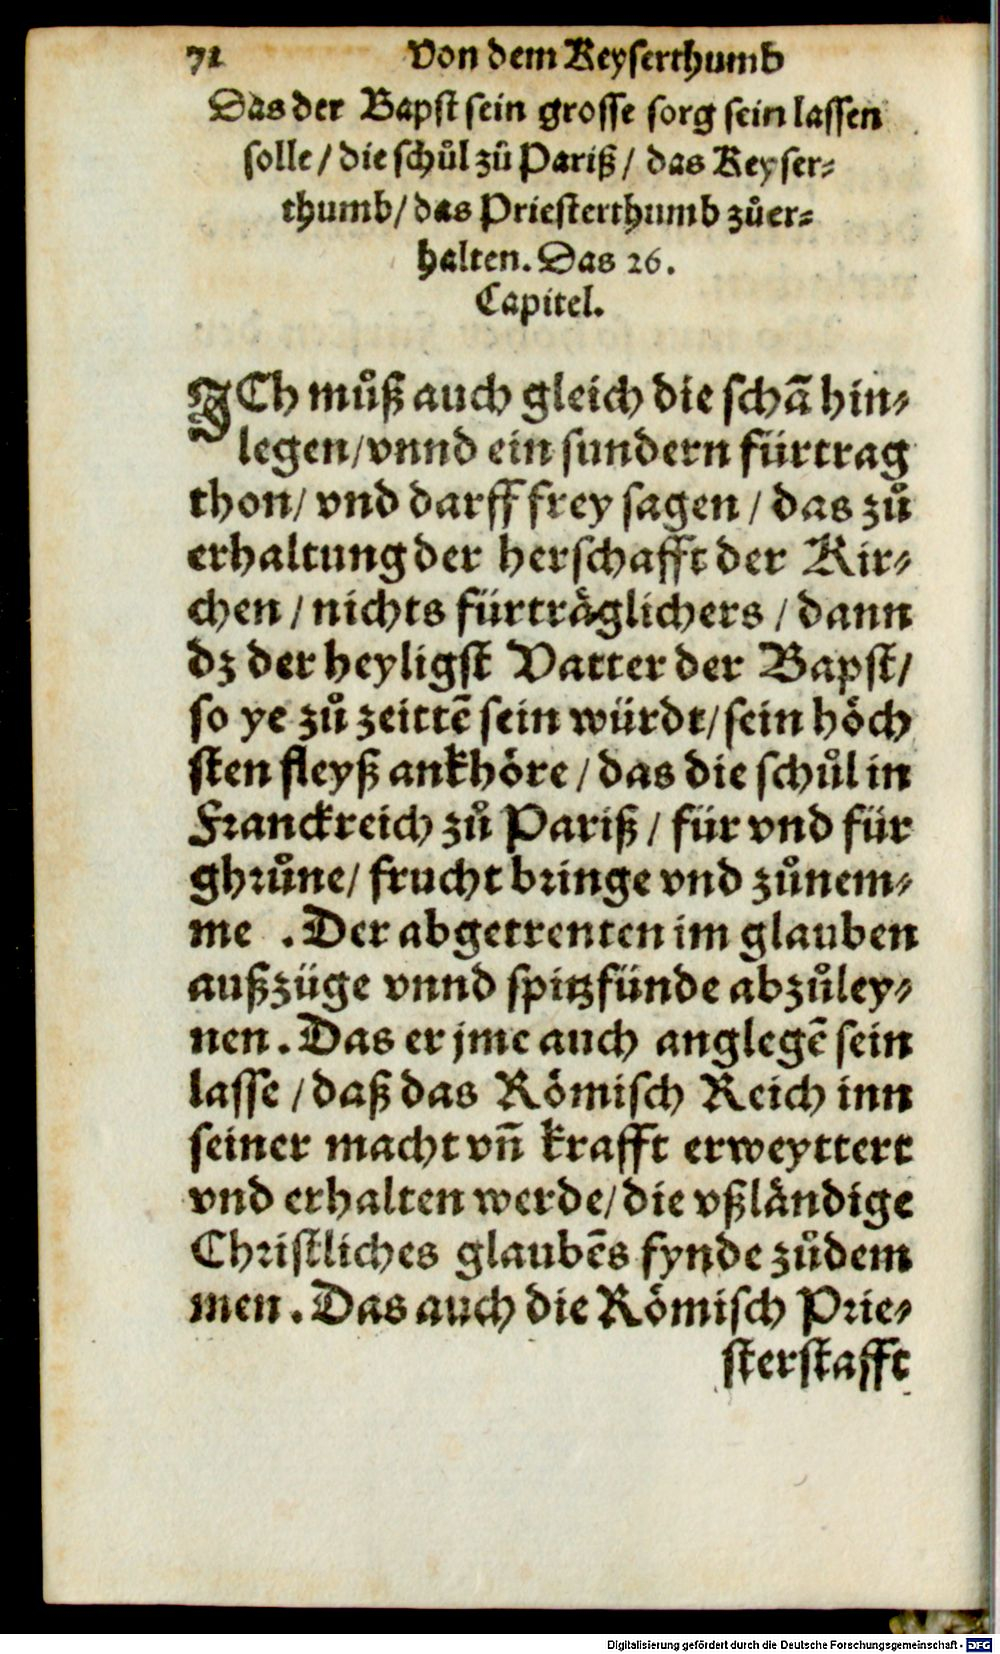 71 Von dem Keyserthumb
Das der Bapst sein grosse sorg sein lassen
solle / die schůl zů Pariß / das Keyser⸗
thumb / das Priesterthumb zůer⸗
halten. Das 26.
Capitel.
ICh můß auch gleich die schā hin⸗
legen / vnnd ein sundern fürtrag
thon / vnd darff frey sagen / das zů
erhaltung der herschafft der Kir⸗
chen / nichts fürträglichers / dann
dz der heyligst Vatter der Bapst /
so ye zů zeittē sein würdt / sein höch
sten fleyß ankhöre / das die schůl in
Franckreich zů Pariß / für vnd für
ghrůne / frucht bringe vnd zůnem⸗
me . Der abgetrenten im glauben
außzüge vnnd spitzfünde abzůley⸗
nen. Das er jme auch anglegē sein
lasse / daß das Römisch Reich inn
seiner macht vñ krafft erweyttert
vnd erhalten werde / die vßländige
Christliches glaubēs fynde zůdem
men. Das auch die Römisch Prie⸗
sterstafft
Digitalisierung gefördert durch die Deutsche Forschungsgemeinschaft - DFG